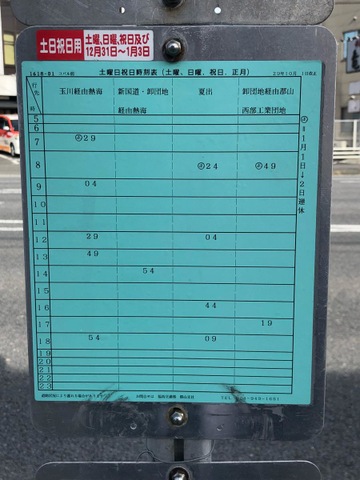 土日祝日用
土曜、日曜、祝日及び
12月31日〜1月3日
土曜日祝日時刻表(土曜、日曜、祝日、正月)
29年10月 1日改正
行先
時
玉川経由熱海
新国道・卸団地
経由熱海
夏出
卸団地経由郡山
西部工業団地
5
6
7 ㊣29
8 ㊣24 ㊣49
9 04
10
11
12 29 04
13 49
14 54
15
16 44
17 19
18 54 09
19
20
21
22
23
1月1日→2日運休